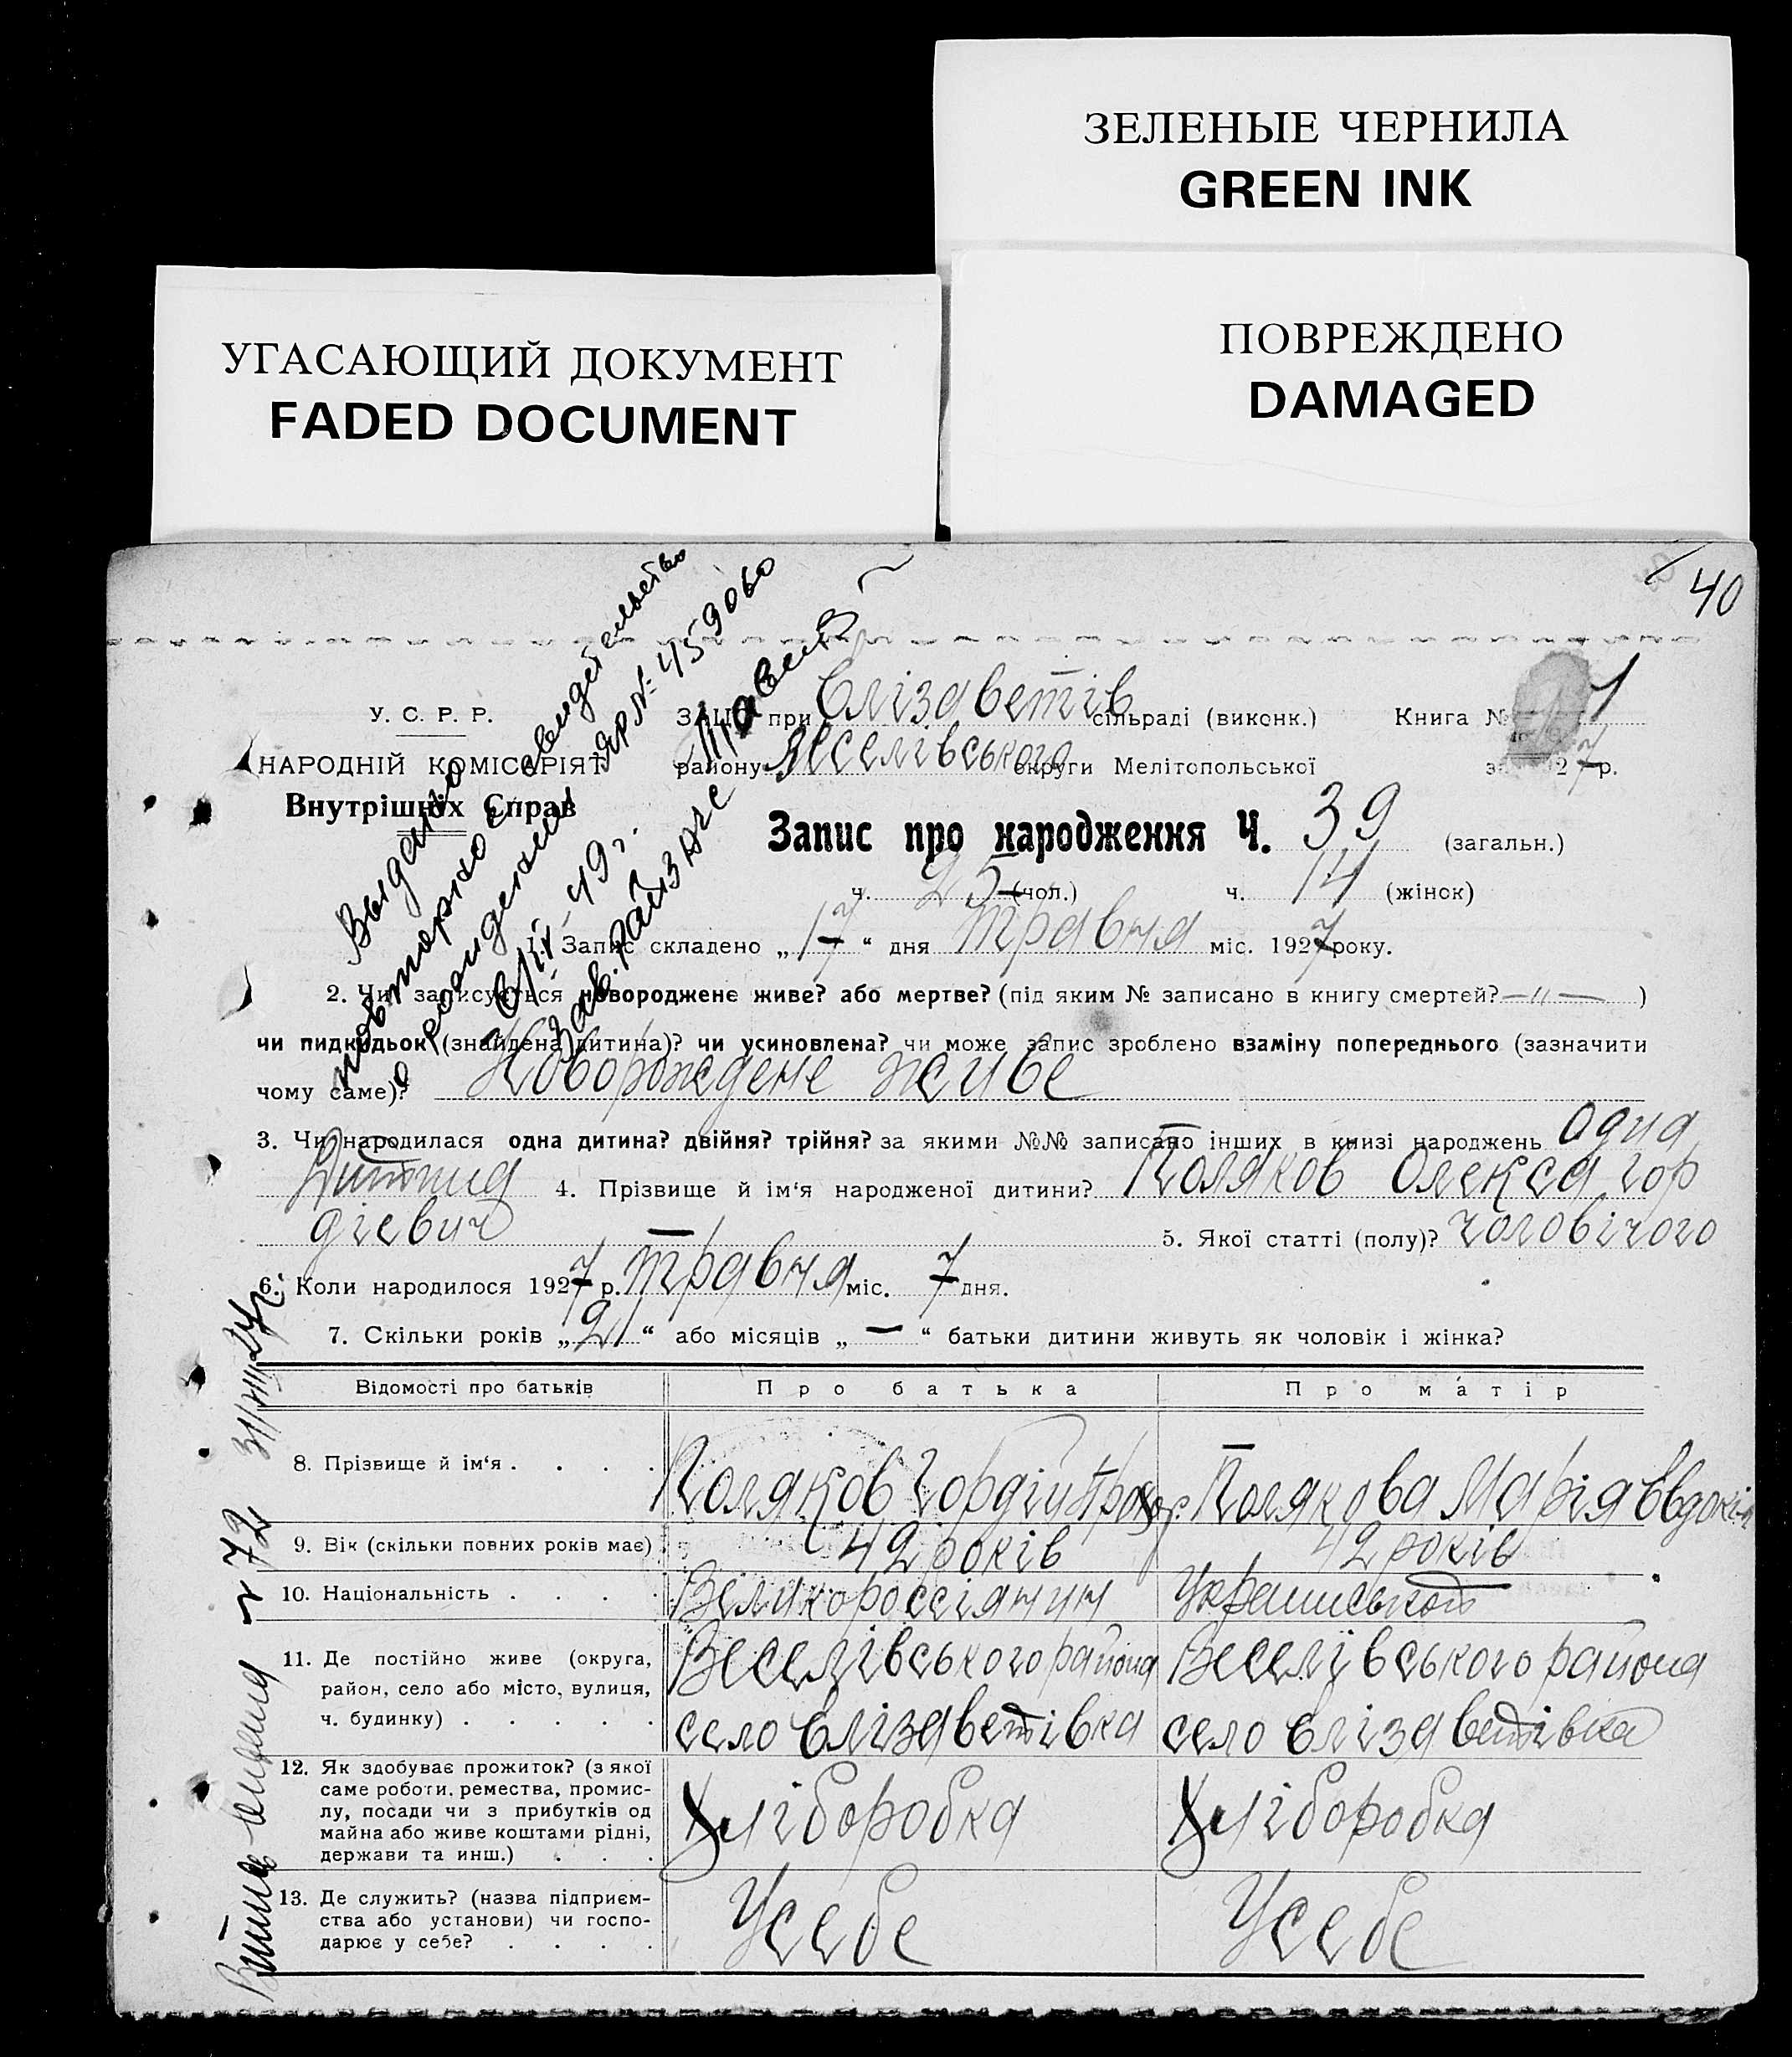 ЗЕЛЕНЫЕ ЧЕРНИЛА
GREEN INK
УГАСАЮЩИЙ ДОКУМЕНТ
FADED DOCUMENT
ПОВРЕЖДЕНО
DAMAGED
40
Выдано
повторное свидетельство
о рождении ЯР № 459060
49 г.
Зав. райзагс
У. С. Р. Р.
НАРОДНІЙ КОМІСАРІЯТ
Внутрішніх Справ
ЗАЦС при Єлізаветів сільраді (виконк.) Книга № 1
району Веселівського округи Мелітопольської за 1927 р.
Запис про народження Ч. 39 (загальн.)
ч. 25 (чол.) ч. 14 (жінок)
1. Запис складено „17“ дня Травня міс. 1927 року.
2. Чи записується новороджене живе? або мертве? (під яким № записано в книгу смертей? —„— )
чи пидкидьок (знайдена дитина)? чи усиновлена? чи може запис зроблено взаміну попереднього (зазначити
чому саме)? Новорождене живе
3. Чи народилася одна дитина? двійня? трійня? за якими №№ записано інших в книзі народжень Одна
Дитина 4. Прізвище й ім‘я народженої дитини? Поляков Олекса Гор
дієвич 5. Якої статті (полу)? чоловічого
6. Коли народилося 1927 р. Травня міс. 7 дня.
7. Скільки років „21“ або місяців „—“ батьки дитини живуть як чоловік і жінка?
Відомості про батьків Про батька Про матір
8. Прізвище й ім‘я . . . . Поляков Гордій Прохор. Полякова Марія Євдокім
9. Вік (скільки повних років має) 42 років 42 років
10. Національність . . . . Великороссіянин Украинськой
11. Де постійно живе (округа, район, село або місто, вулиця, ч. будинку) . . . . . Веселівського района село Єлізаветівка Веселівського района село Єлізаветівка
12. Як здобуває прожиток? (з якої саме роботи, ремества, промислу, посади чи з прибутків од майна або живе коштами рідні, держави та инш.) . . . Хліборобка Хліборобка
13. Де служить? (назва підприємства або установи) чи господарює у себе? . . . . У себе У себе
№ 72